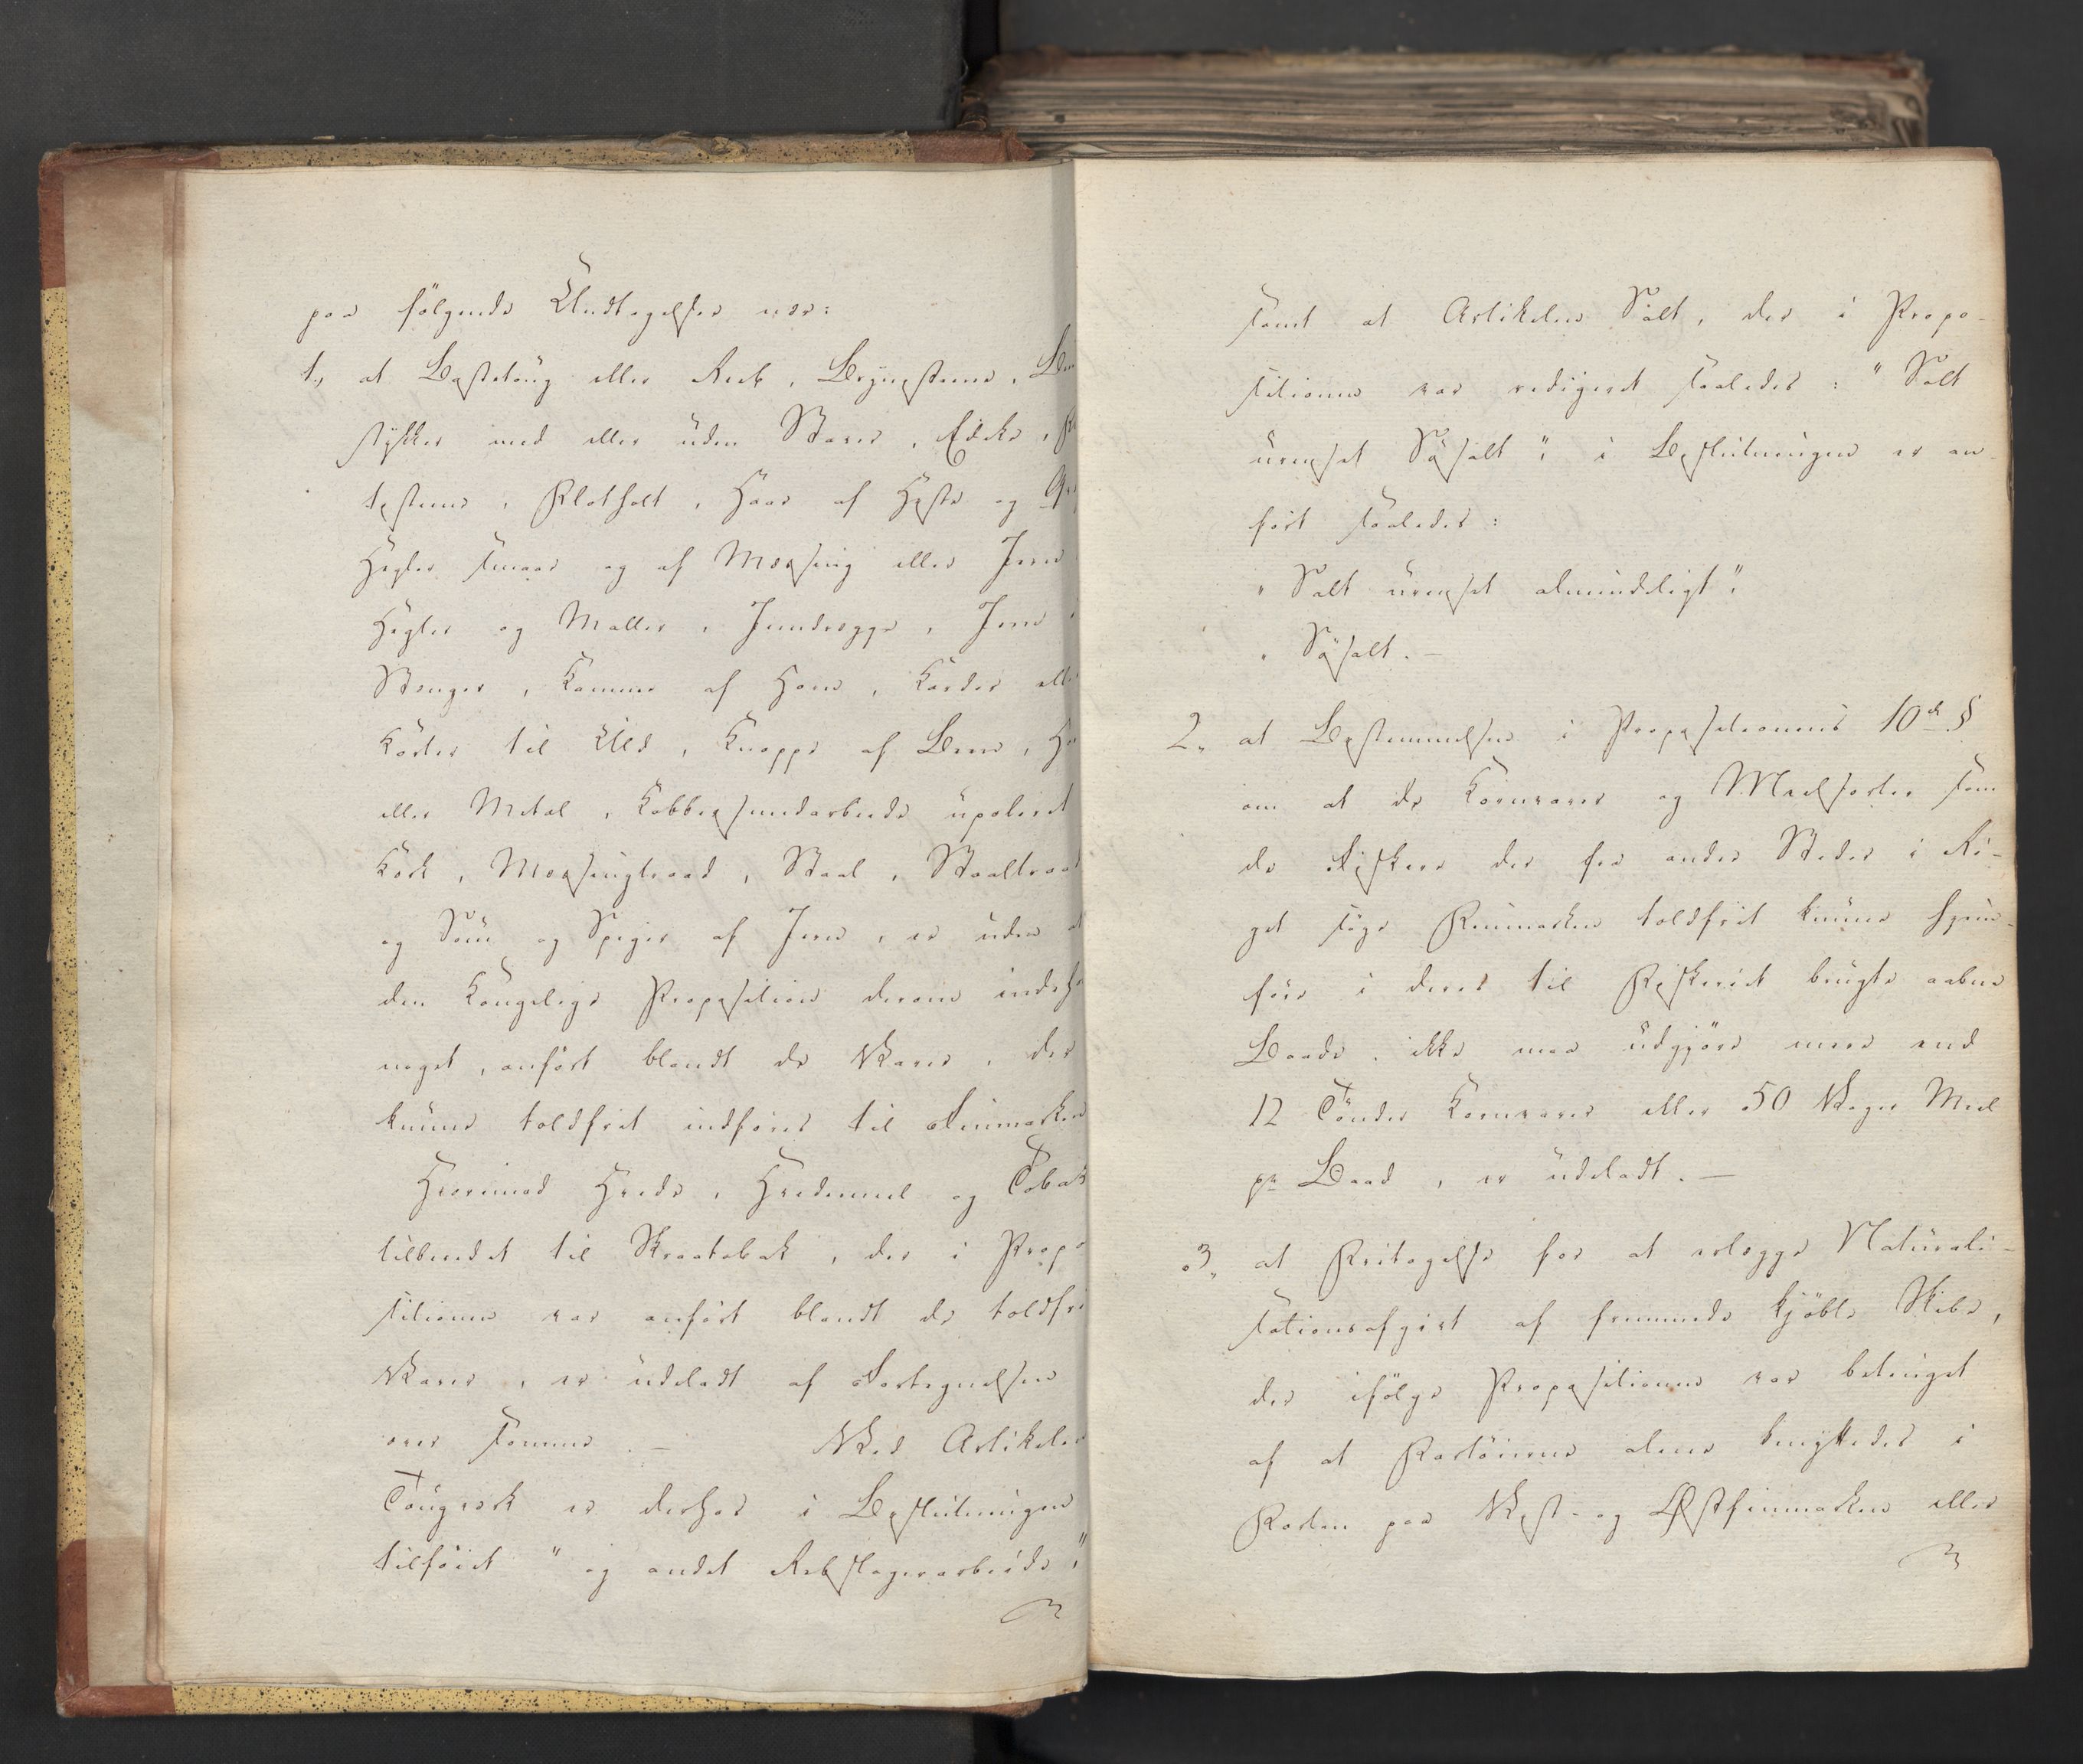 paa følgende Undtagelser nær:
1, at Bastetöug eller Reeb, Brÿnestene,
stÿkker med eller uden Staver, Edeke,
testene, Klokholt, Haar af Heste og
Hegler smaae og af Messing eller Jern
Hegler og Maller, Jerndregge, Jern i
Stænger, Kamme af Horn, Karder elle
Korter til Uld, Knappe af Been, Ho
eller Metal, Kobbersmedarbeide upoleret
Kork, Messingtraad, Staal, Staaltraad
og Söm og Spiger af Jern, er uden at
den Kongelige Proposition derom indeh
noget, anfört blandt de Varer, der
kunne toldfrit indføres til Finmarken
Hvorimod Hvede, Hvedemeel og Tobak
tilberedet til Skraatobak, der i Propo
sitionen var anfört blandt de toldfri
Varer, er udeladt af Fortegnelsen
over samme. – Ved Artikelen
Tougværk er derhos i Beslutningen
tilföiet " og andet Rebslagerarbeide",
samt at Artikelen Salt, der i Propo-
sitionen var redigeret saaledes: " Salt
urenset Søsalt", i Beslutningen er an-
fört saaledes:
" Salt urenset almindeligt",
" Søsalt. –
2, at Bestemmelsen i Propositionens 10de §
om at de Kornvarer og Meelsorter som
de Fiskere der fra andre Steder i Ri-
get söge Finmarken toldfrit kunne hjem-
före i deres til Fiskeriet brugte aabne
Baade, ikke maa udgjöre mere end
12 Tönder Kornvarer eller 50 Voger Meel
pr Baad, er udeladt. –
3, at Fritagelse for at erlægge Naturali-
sationsafgivt af fremmede kjöbte Skibe,
der ifölge Propositionen var betinget
af at Fartöierne alene benÿttedes i
Farten paa Vest- og Østfinmarken eller